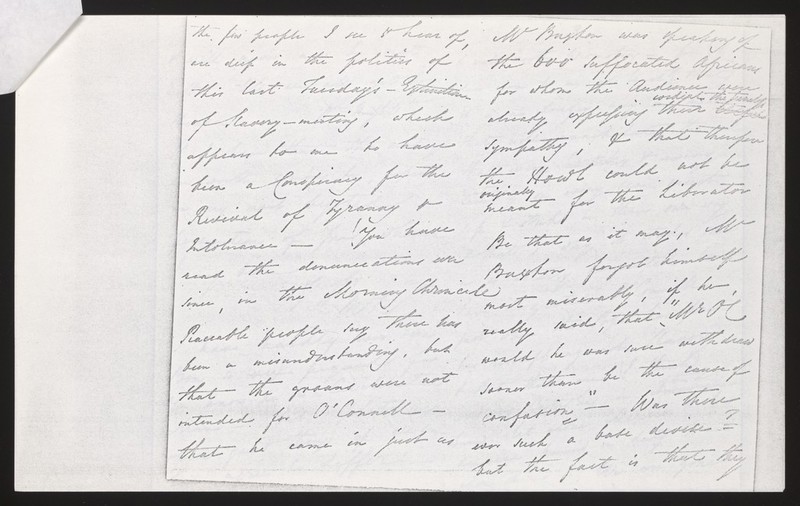 the few people I see & hear of,
are deep in the politics of
this last Tuesday's - Extinction
of Slavery - meeting, which
appears to me to have
been a Conspiracy for the
Revival of Tyranny &
Intolerance — You have
read the denunciations ever
since, in the Morning Chronicle
Peaceable people say there has
been a misunderstanding, but
that the groans were not
intended for O'Connell —
that he came in just as
Mr Buxton was speaking of
the 600 suffocated Africans
for whom the Audience were
already expressing their
sympathy, & that therefore
the Howl could not be
originally
meant for the Liberator
Be that as it may, Mr
Buxton forgot himself
most miserably, if he,
really said, that "Mr O'C
would he was sure withdraw
sooner than be the cause of
confusion" — Was there
ever such a base desire?
But the fact is that they